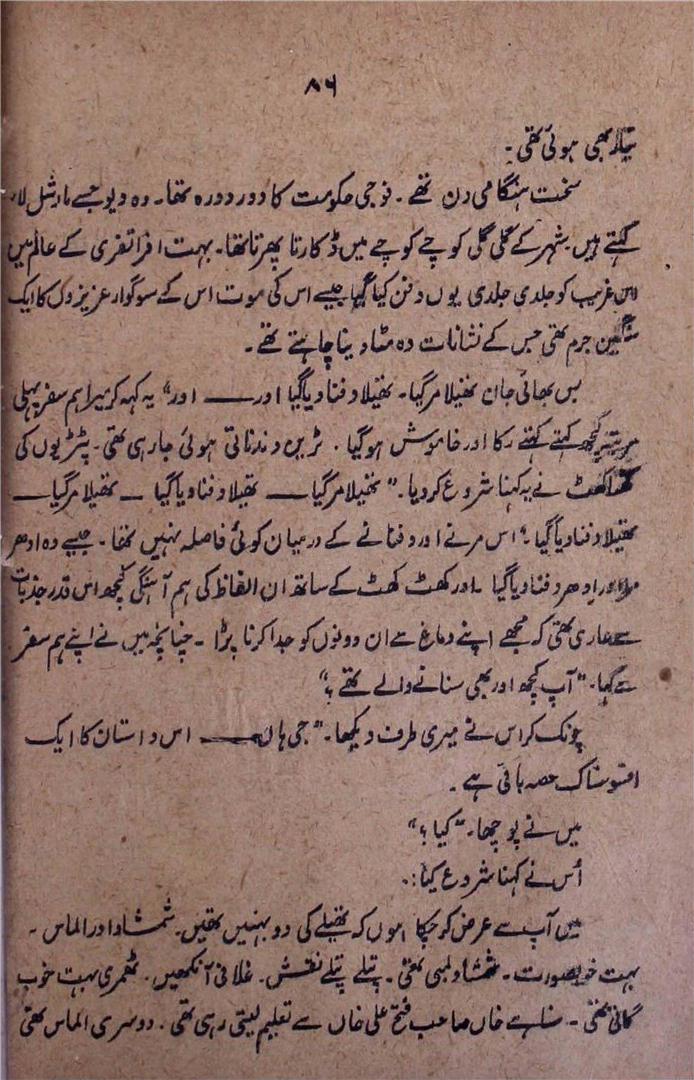 ۸۶
بھی ہوئی تھی۔
سخت ہنگامی دن تھے۔ فوجی حکومت کا دور دورہ تھا۔ وہ دیو جسے مارشل لاء
کہتے ہیں۔ شہر کے گلی گلی کوچے کوچے میں ڈکارتا پھرتا تھا۔ بہت افراتفری کے عالم میں
اس غریب کو جلدی جلدی یوں دفن کیا گیا جیسے اس کی موت اس کے سوگوار عزیزوں کا ایک
سنگین جرم تھی جس کے نشانات وہ مٹا دینا چاہتے تھے۔
بس بھائی جان تھیلا مر گیا۔ تھیلا دفنا دیا گیا اور —— اور“ یہ کہہ کر میرا ہم سفر پہلی
مرتبہ کچھ کہتے کہتے رکا اور خاموش ہو گیا۔ ٹرین دندناتی ہوئی جا رہی تھی۔ پٹڑیوں کی
کھٹاکھٹ نے یہ کہنا شروع کر دیا۔ ”تھیلا مر گیا —— تھیلا دفنا دیا گیا — تھیلا مر گیا —
تھیلا دفنا دیا گیا۔“ اس مرنے اور دفنانے کے درمیان کوئی فاصلہ نہیں تھا۔ جیسے وہ ادھر
مرا اور ادھر دفنا دیا گیا۔ اور کھٹ کھٹ کے ساتھ ان الفاظ کی ہم آہنگی کچھ اس قدر جذبات
سے عاری تھی کہ مجھے اپنے دماغ سے ان دونوں کو جدا کرنا پڑا۔ چنانچہ میں نے اپنے ہم سفر
سے کہا۔ ”آپ کچھ اور بھی سنانے والے تھے؟“
چونک کر اس نے میری طرف دیکھا۔ ”جی ہاں —— اس داستان کا ایک
افسوسناک حصہ باقی ہے۔
میں نے پوچھا۔ ”کیا؟“
اُس نے کہنا شروع کیا:۔
میں آپ سے عرض کر چکا ہوں کہ تھیلے کی دو بہنیں تھیں۔ شمشاد اور الماس۔
بہت خوبصورت۔ شمشاد لمبی تھی۔ پتلے پتلے نقش۔ غلافی آنکھیں۔ ٹھمری بہت خوب
گاتی تھی۔ سنا ہے خاں صاحب فتح علی خاں سے تعلیم لیتی رہی تھی۔ دوسری الماس تھی